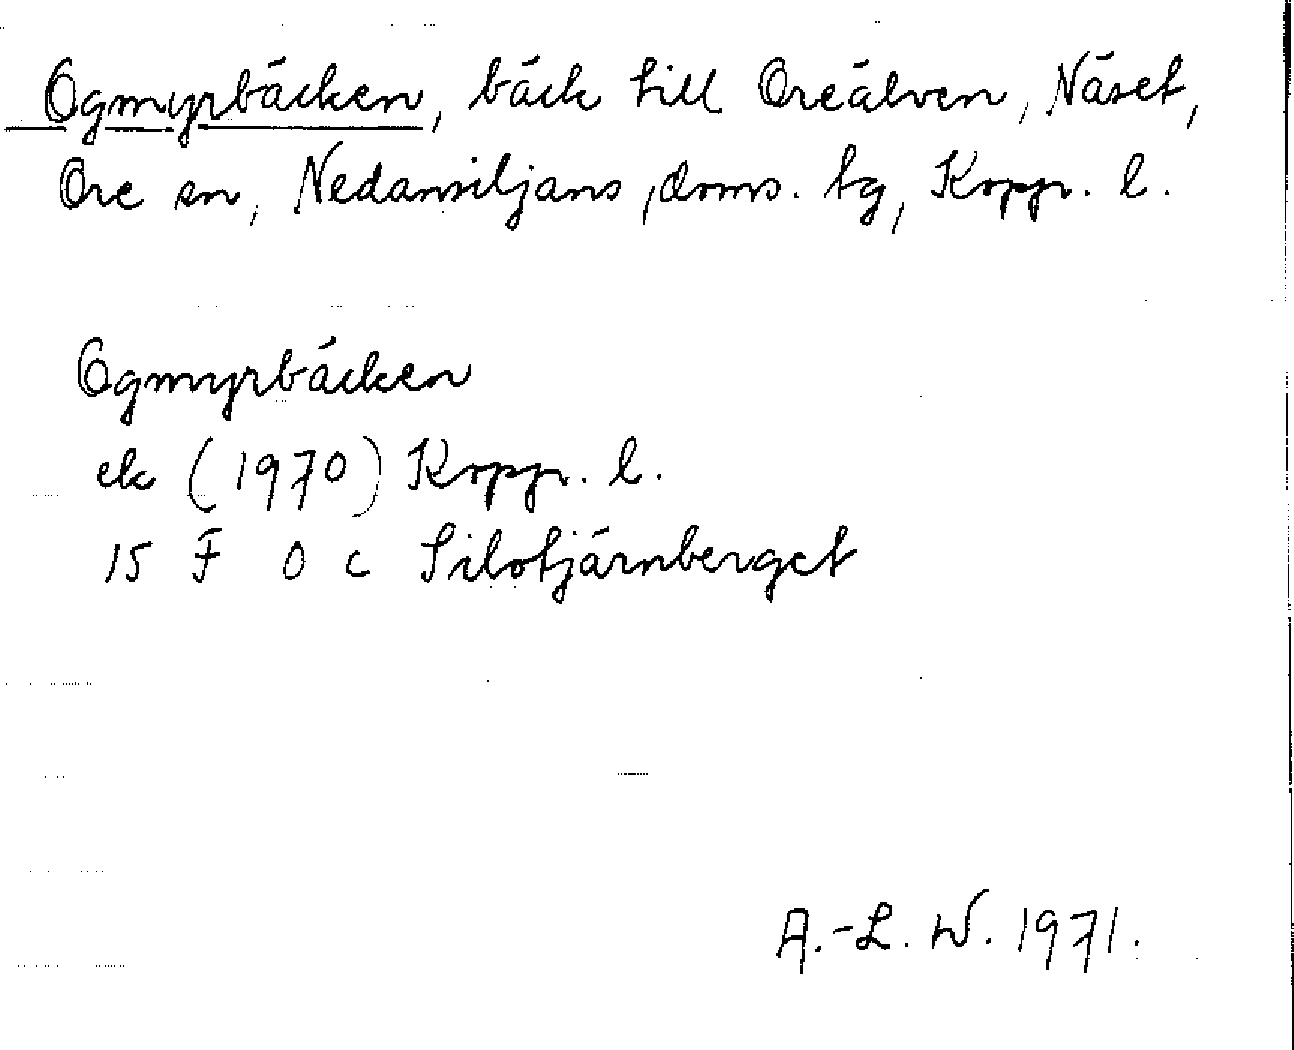 Ogmyrbäcken, bäck till Oreälven, Näset,
Ore sn, Nedansiljans, doms. tg, Kopp. l.
Ogmyrbäcken
ek (1970) Kopp. l.
15 F 0 c Silotjärnberget
A.-L. W. 1971.